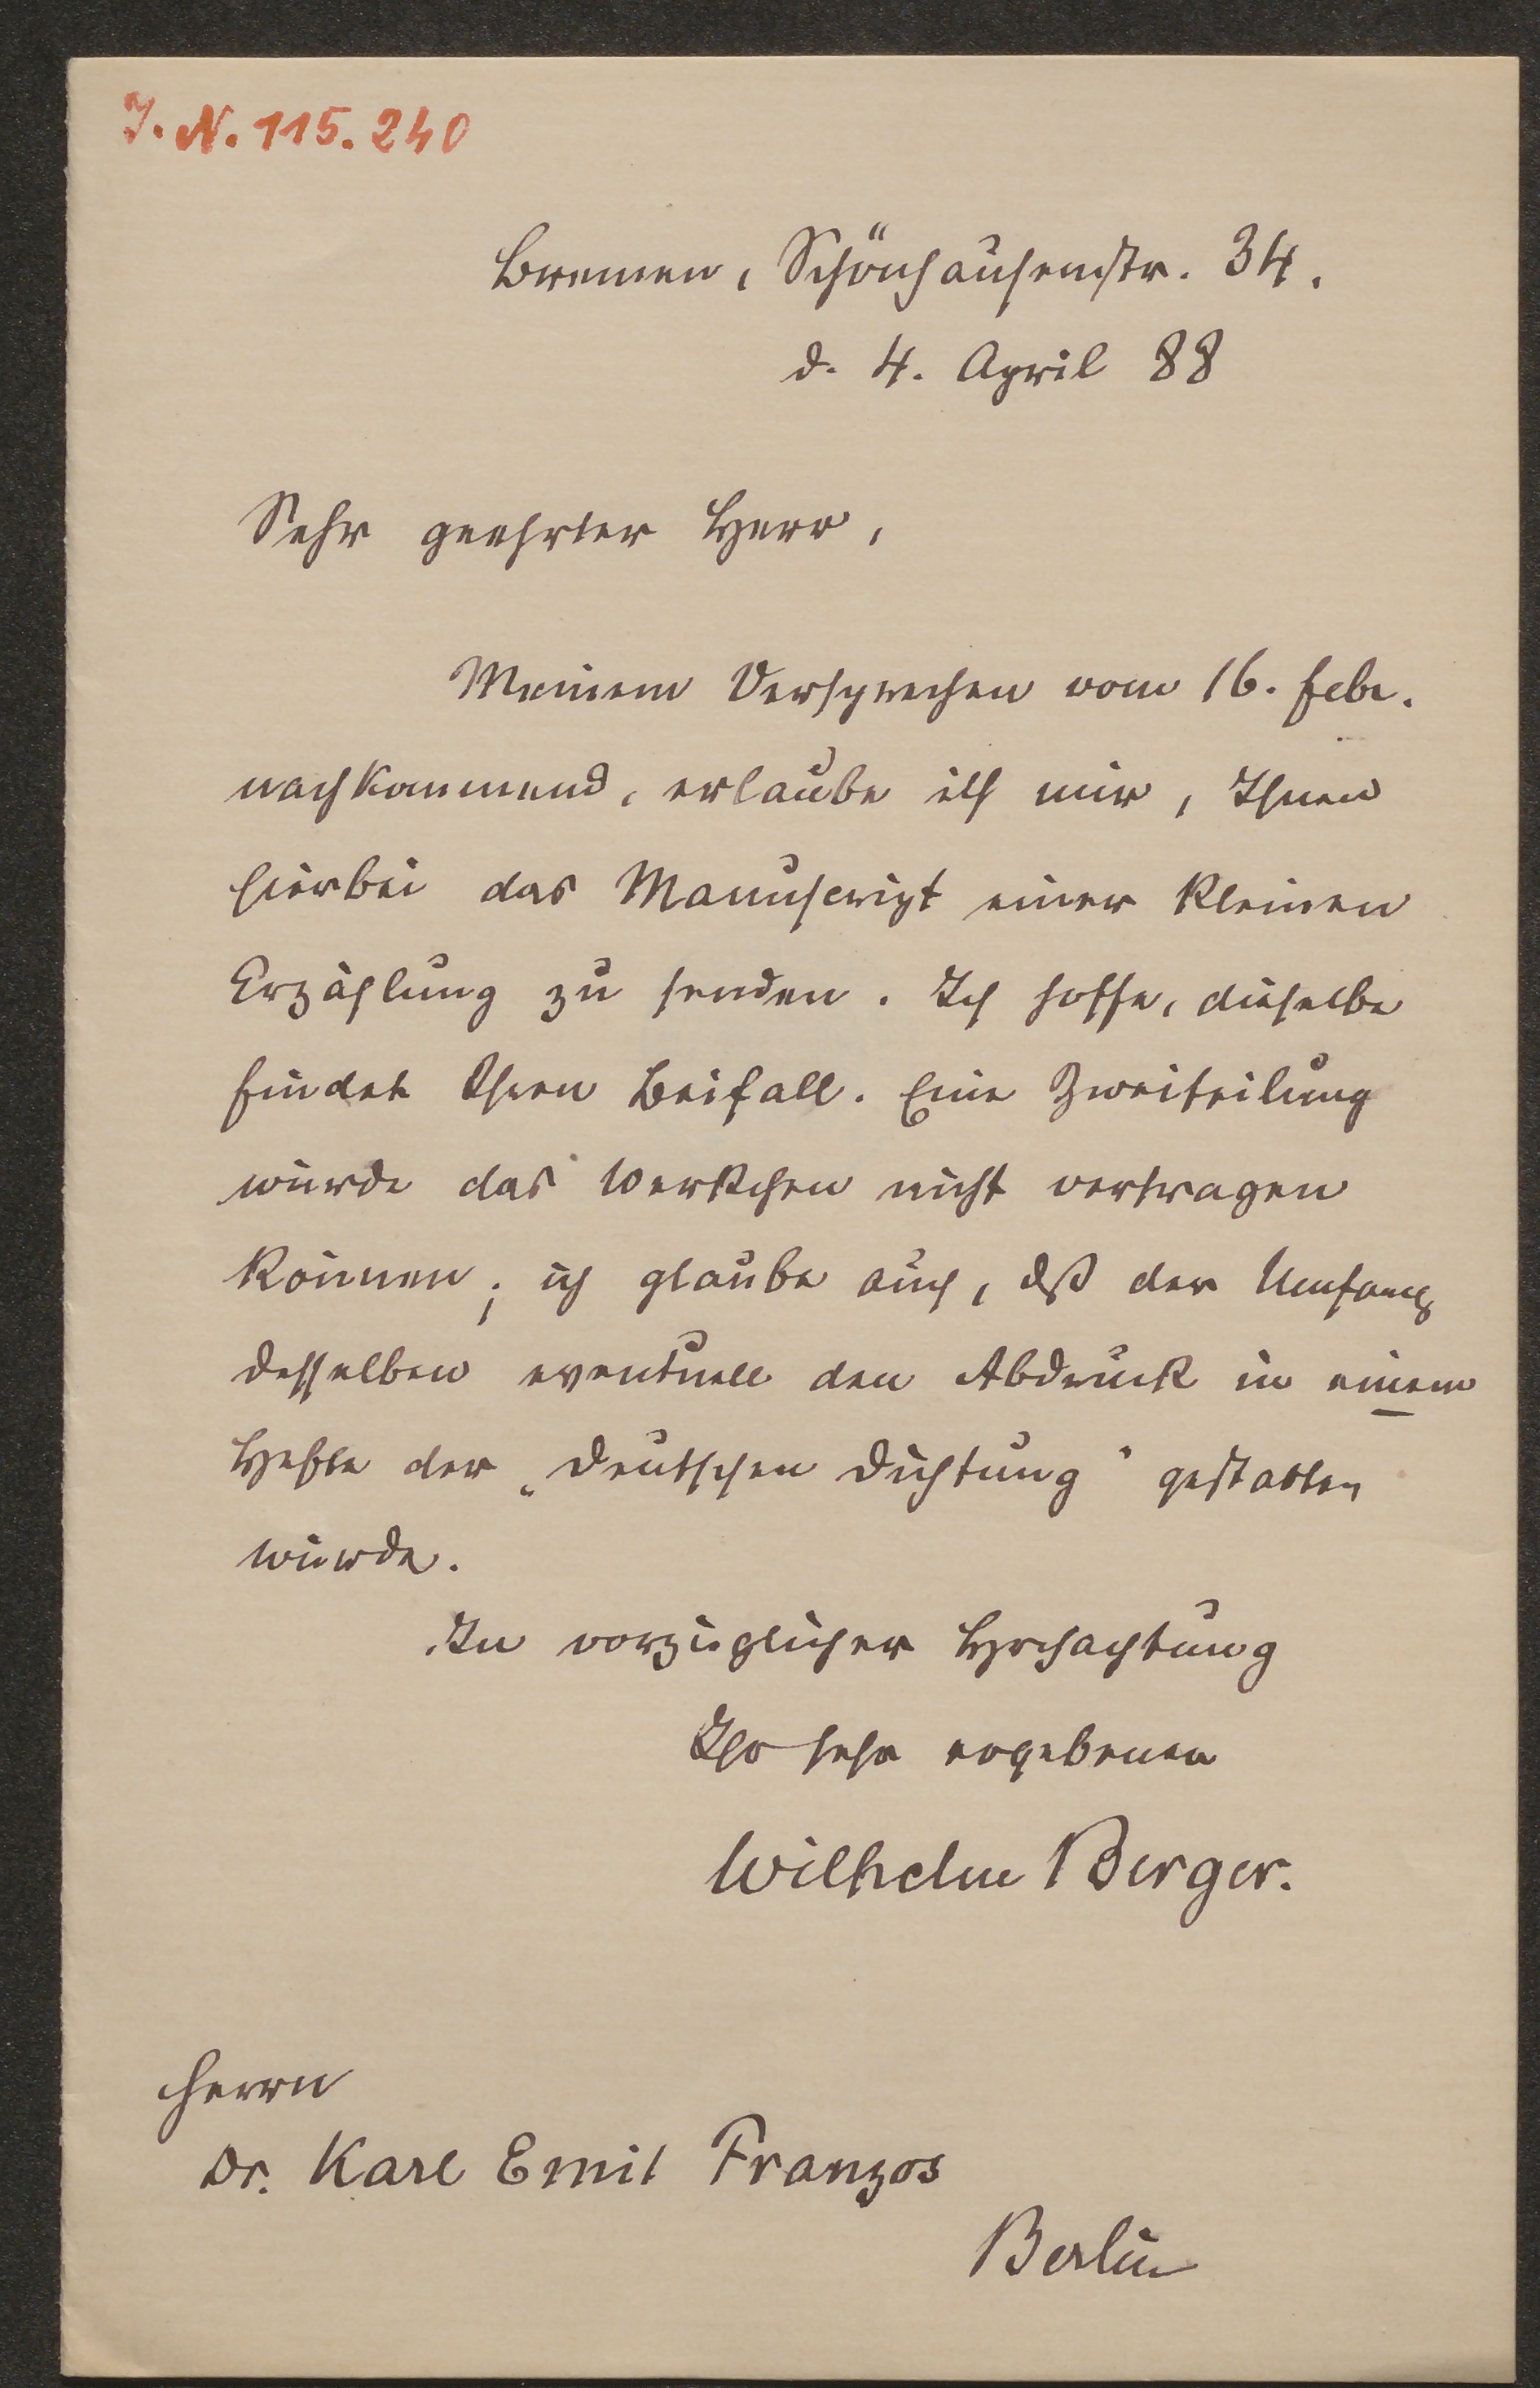 J. N. 115.240
Bremen, Schönhausenstr. 34.
d. 4. April 88
Sehr geehrter Herr,
Meinem Versprechen vom 16. Febr.
nachkommend, erlaube ich mir, Ihnen
hierbei das Manuscript einer kleinen
Erzählung zu senden. Ich hoffe, dieselbe
findet Ihren Beifall. Eine Zweiteilung
würde das Werkchen nicht vertragen
können; ich glaube auch, dß der Umfang
desselben eventuell den Abdruck in einem
Hefte der „Deutschen Dichtung“ gestatten
würde.
In vorzüglicher Hochachtung
Ihr sehr ergebener
Wilhelm Berger.
Herrn
Dr. Karl Emil Franzos
Berlin